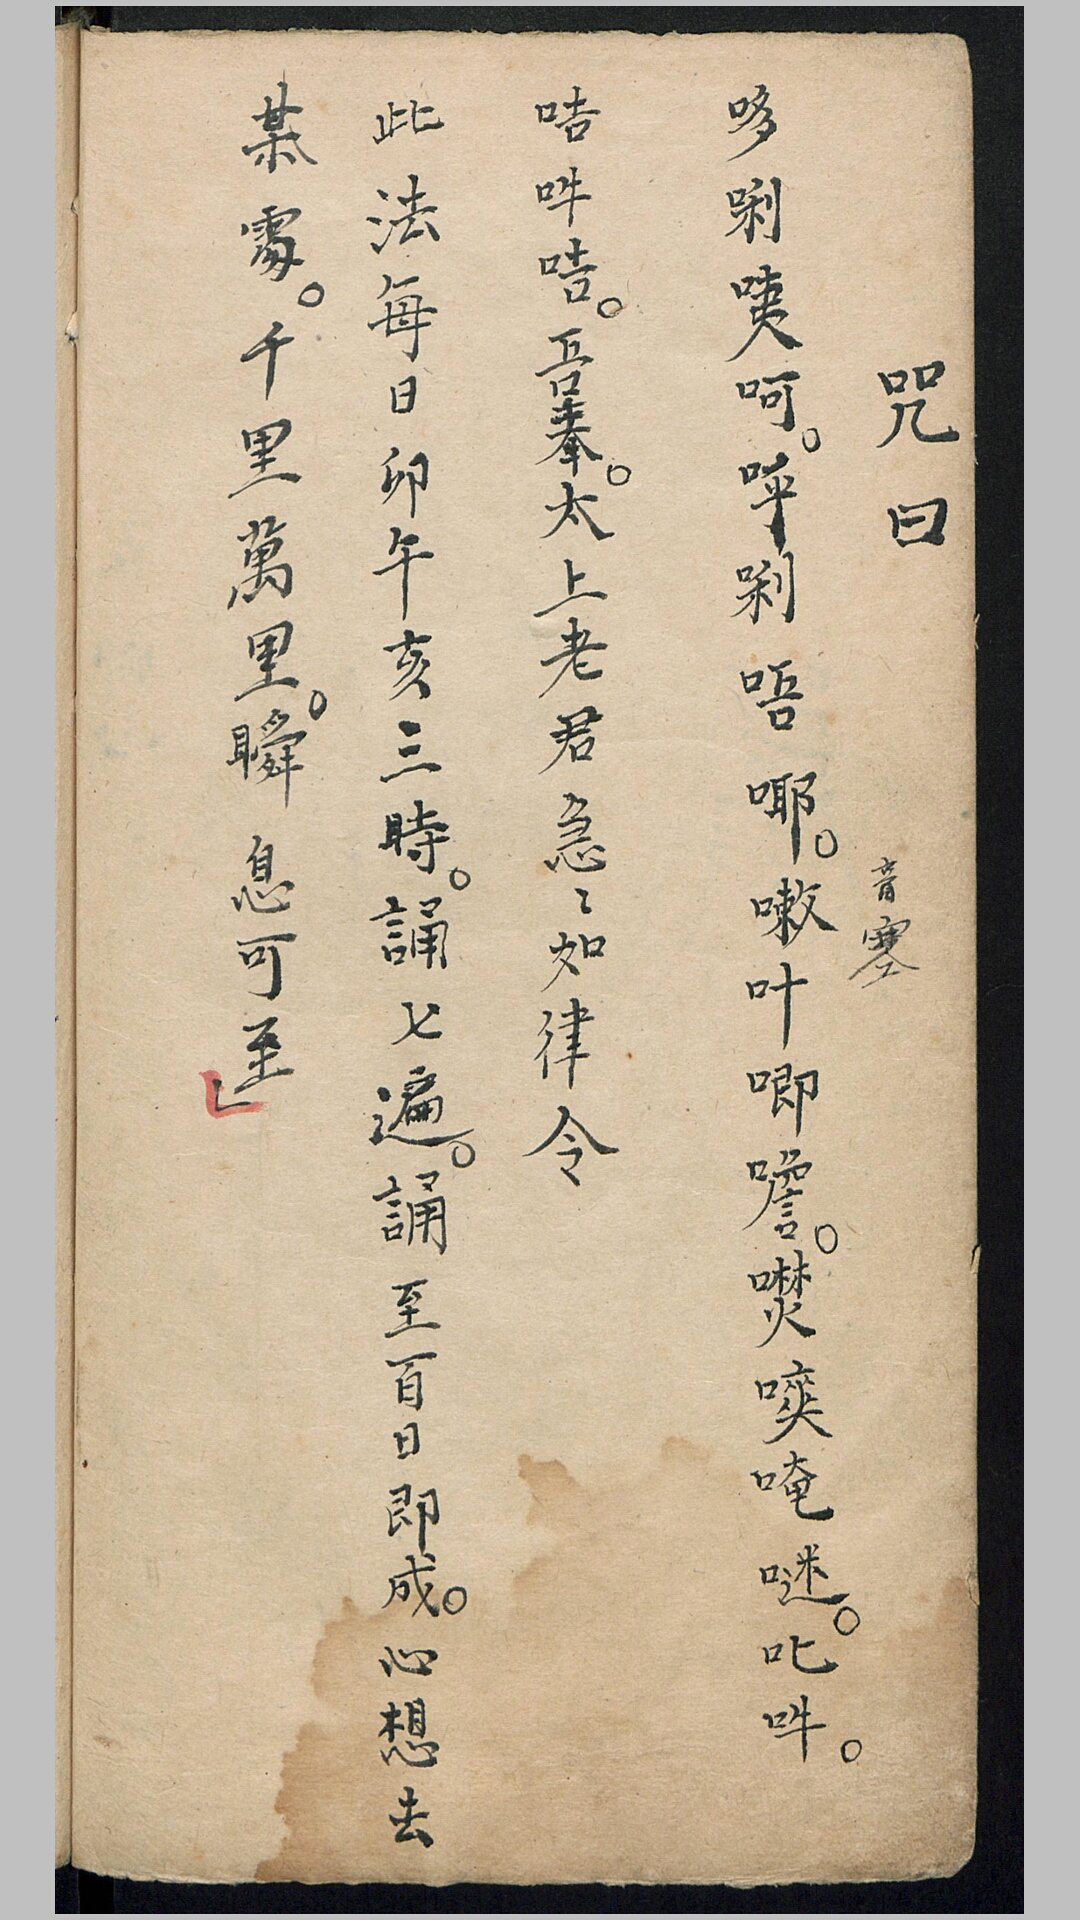 咒曰
哆唎㖿呵。呼唎唔㖿。嗽叶唧噡。㗫㗩唵𠴨。叱吽。
音塞
咭吽咭。吾奉。太上老君急〻如律令
此法每日卯午亥三時。誦七遍。誦至百日即成。心想去
某處。千里萬里。瞬息可至